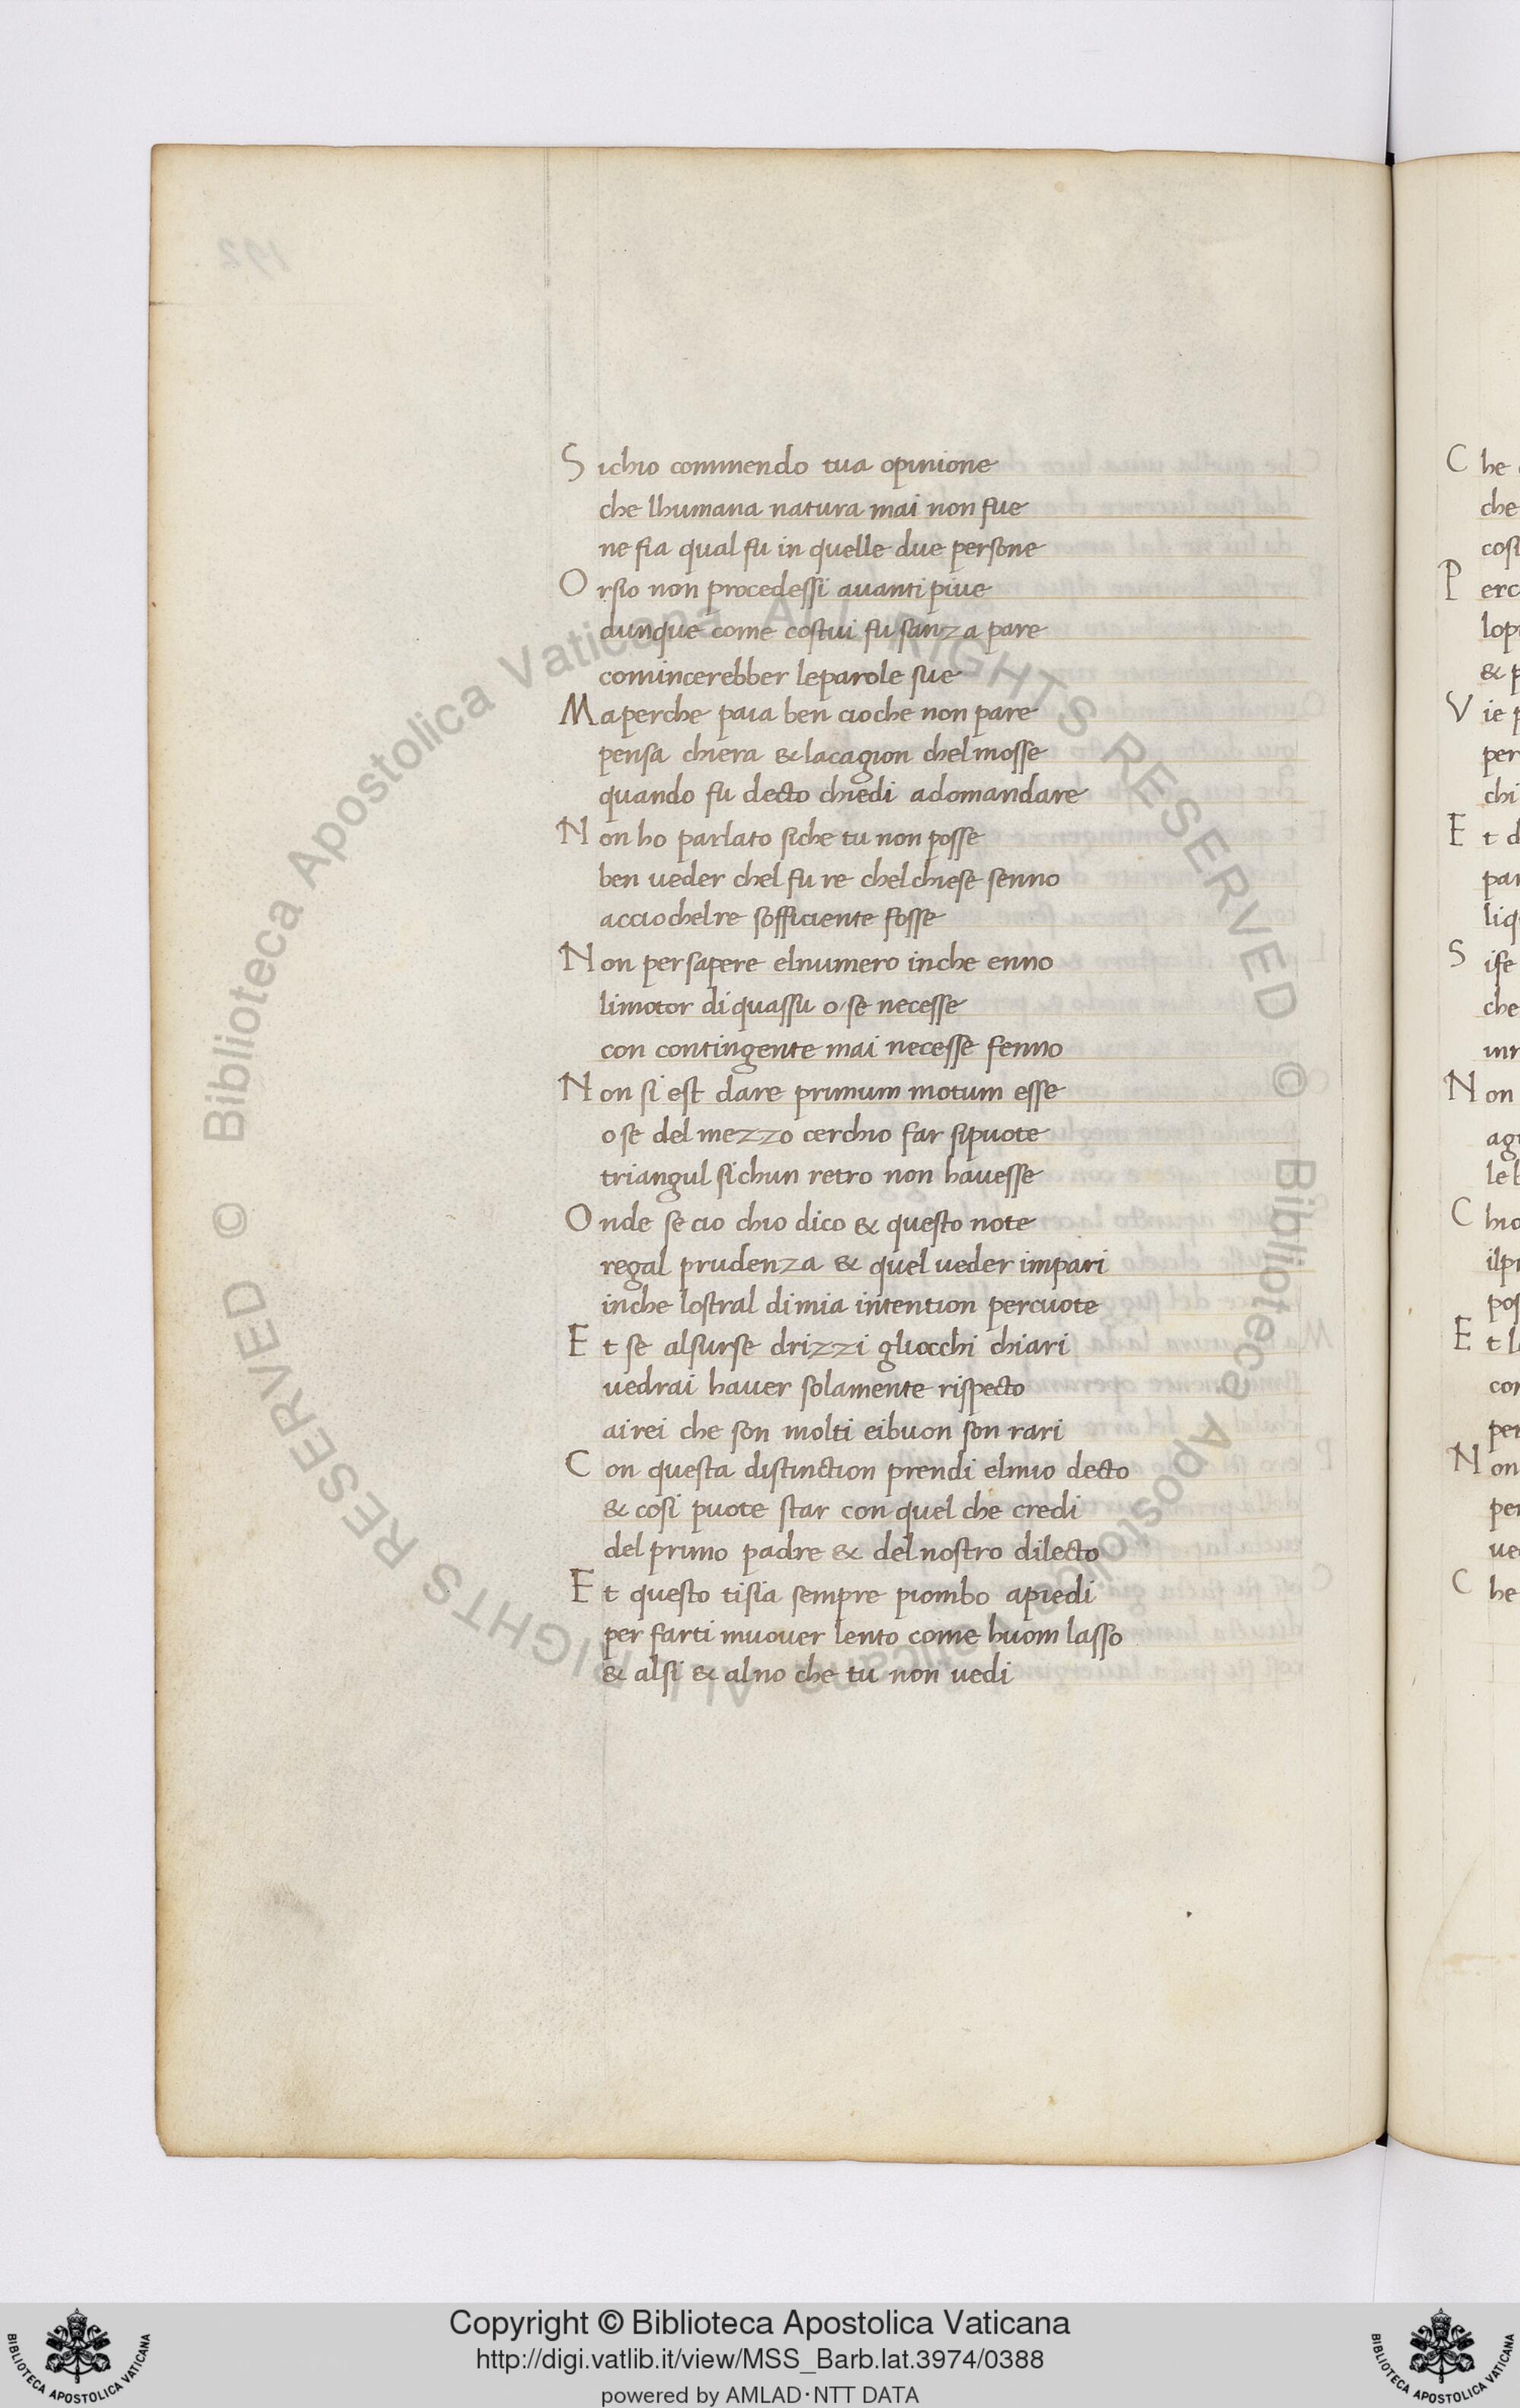 Sichio commendo tua opinione
che lhumana natura mai non fue
ne fia qual fu in quelle due persone
Orsio non procedessi auanti piue
dunque come costui fu sanza pare
comincerebber leparole sue
Maperche paia ben cioche non pare
pensa chiera & lacagion chelmosse
quando fu decto chiedi adomandare
Non ho parlato siche tu non posse
ben ueder chel fu re chelchiese senno
acciochelre sofficiente fosse
Non persapere elnumero inche enno
limotor diquassu o se necesse
con contingente mai necesse fenno
Non si est dare primum motum esse
ose del mezzo cerchio far sipuote
triangul sichun retro non hauesse
Onde se cio chio dico & questo note
regal prudenza & quel ueder impari
inche lostral dimia intention percuote
Et se alsurse drizzi gliocchi chiari
uedrai hauer solamente rispecto
airei che son molti eibuon son rari
Con questa distinction prendi elmio decto
& cosi puote star con quel che credi
del primo padre & delnostro dilecto
Et questo tisia sempre piombo apiedi
per farti muouer lento come huom lasso
& alsi & alno che tu non uedi
Che
che
cosi
Perc
lop
& p
Vie p
per
chi
Et d
par
liq
Sise
che
Non
ag
leb
Chio
ilp
pos
Et l
con
per
Non
per
ue
Che
192
© Biblioteca Apostolica Vaticana ALL RIGHTS RESERVED © Biblioteca Apostolica Vaticana ALL RIGHTS RESERVED
Copyright © Biblioteca Apostolica Vaticana
http://digi.vatlib.it/view/MSS_Barb.lat.3974/0388
powered by AMLAD·NTT DATA
BIBLIOTECA APOSTOLICA VATICANA
BIBLIOTECA APOSTOLICA VATICANA